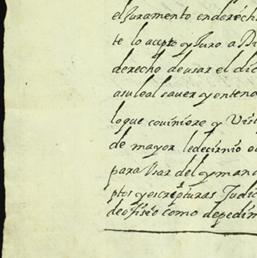 el Juramento en derecho
te lo acepto y Juro a Di
derecho de usar el dic
a su leal saver y entend
lo que coviniere y Vi
de mayor
para Usar del y man
ptos y escripturas Judic
de offisio como de pedim